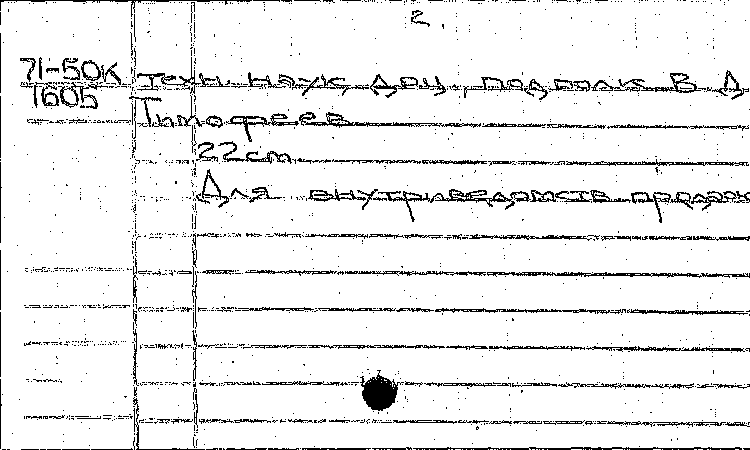 2.
71-50К техн. наук, доц., подполк В Д
1605 Тимофеев
22 cm.
Для внутриведомств продаж